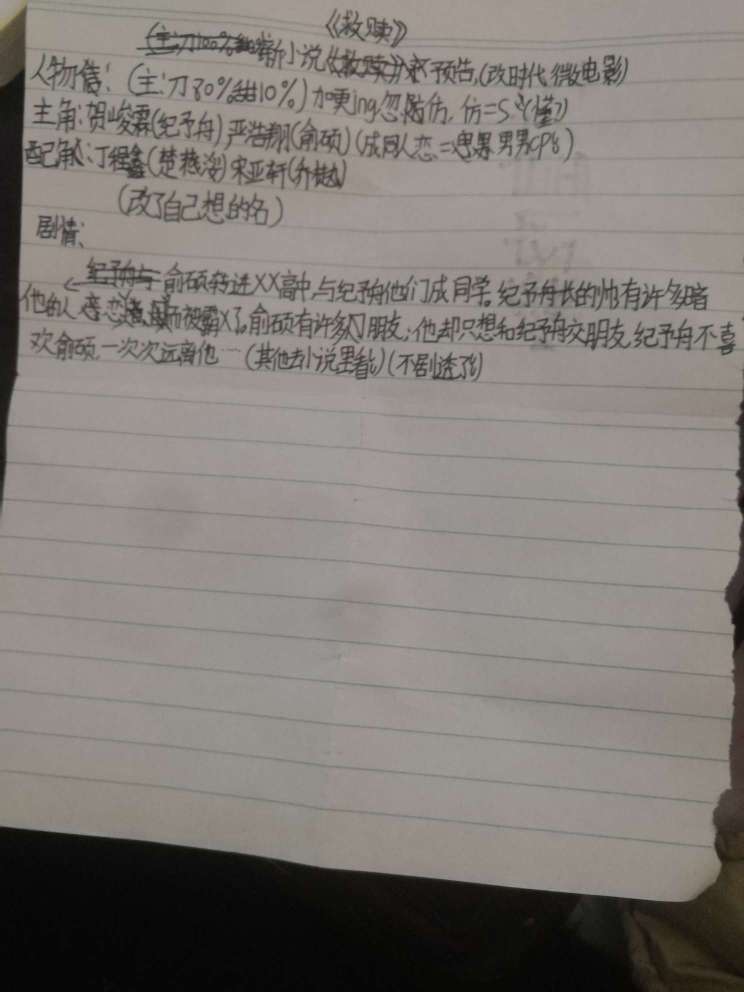 《救赎》
新小说《救赎》预告(改时代微电影)
人物信:(主:刀80%甜10%)加更ing忽盗仿,仿=S(懂?)
主角:贺峻霖(纪予舟)严浩翔(俞硕)(成同人恋=男男cp)
配角:丁程鑫(楚燕)宋亚轩(乔)
(改了自己想的名)
剧情:
俞硕转进XX高中,与纪予舟他们成同学。纪予舟长的帅有许多暗
他的人而被霸X了。俞硕有许多朋友;他却只想和纪予舟交朋友,纪予舟不喜
欢俞硕,一次次远离他…(其他去小说里看)(不剧透了)